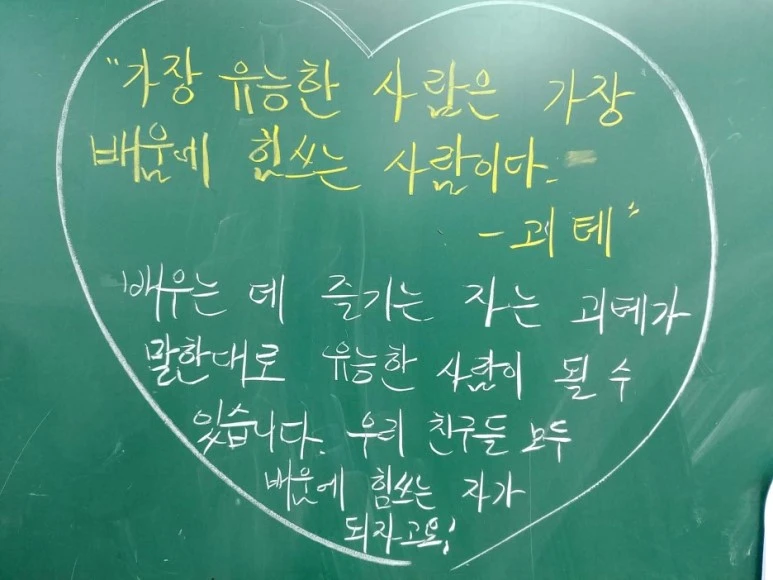 "가장 유능한 사람은 가장
배움에 힘쓰는 사람이다.
- 괴테"
배우는 데 즐기는 자는 괴테가
말한대로 유능한 사람이 될 수
있습니다. 우리 친구들 모두
배움에 힘쓰는 자가
되자고요!